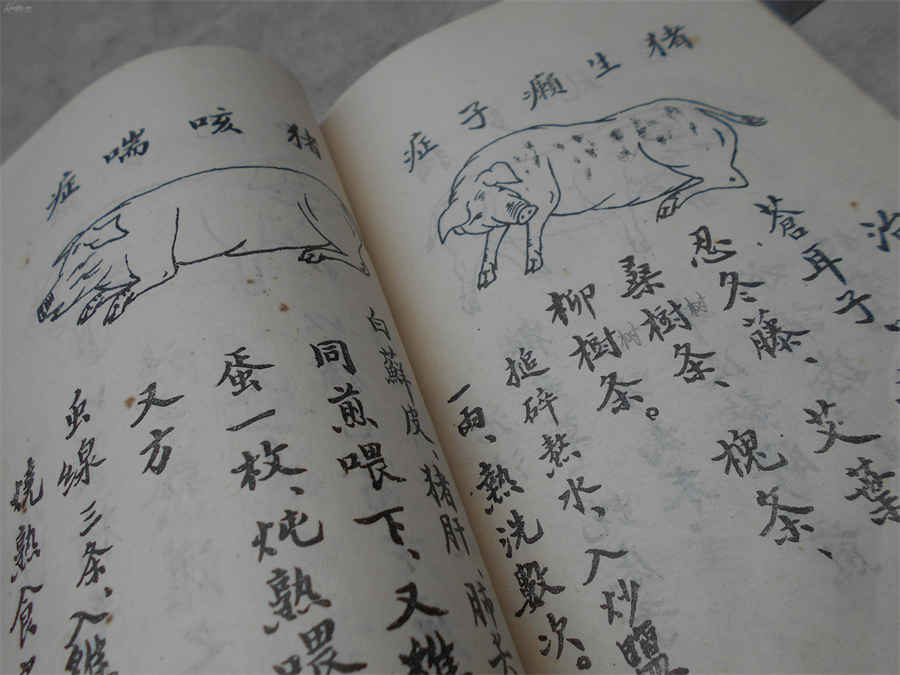 猪生癞子症
治
蒼耳子、
忍冬藤、艾葉
桑樹条、槐条、
树
柳樹条。
树
搥碎熬水、入炒
一両、熱洗數次。
猪咳喘症
白蘚皮、猪肝、肺
同煎喂下、又
蛋一枚、炖熟喂
又方
虫線三条、入
燒熟食